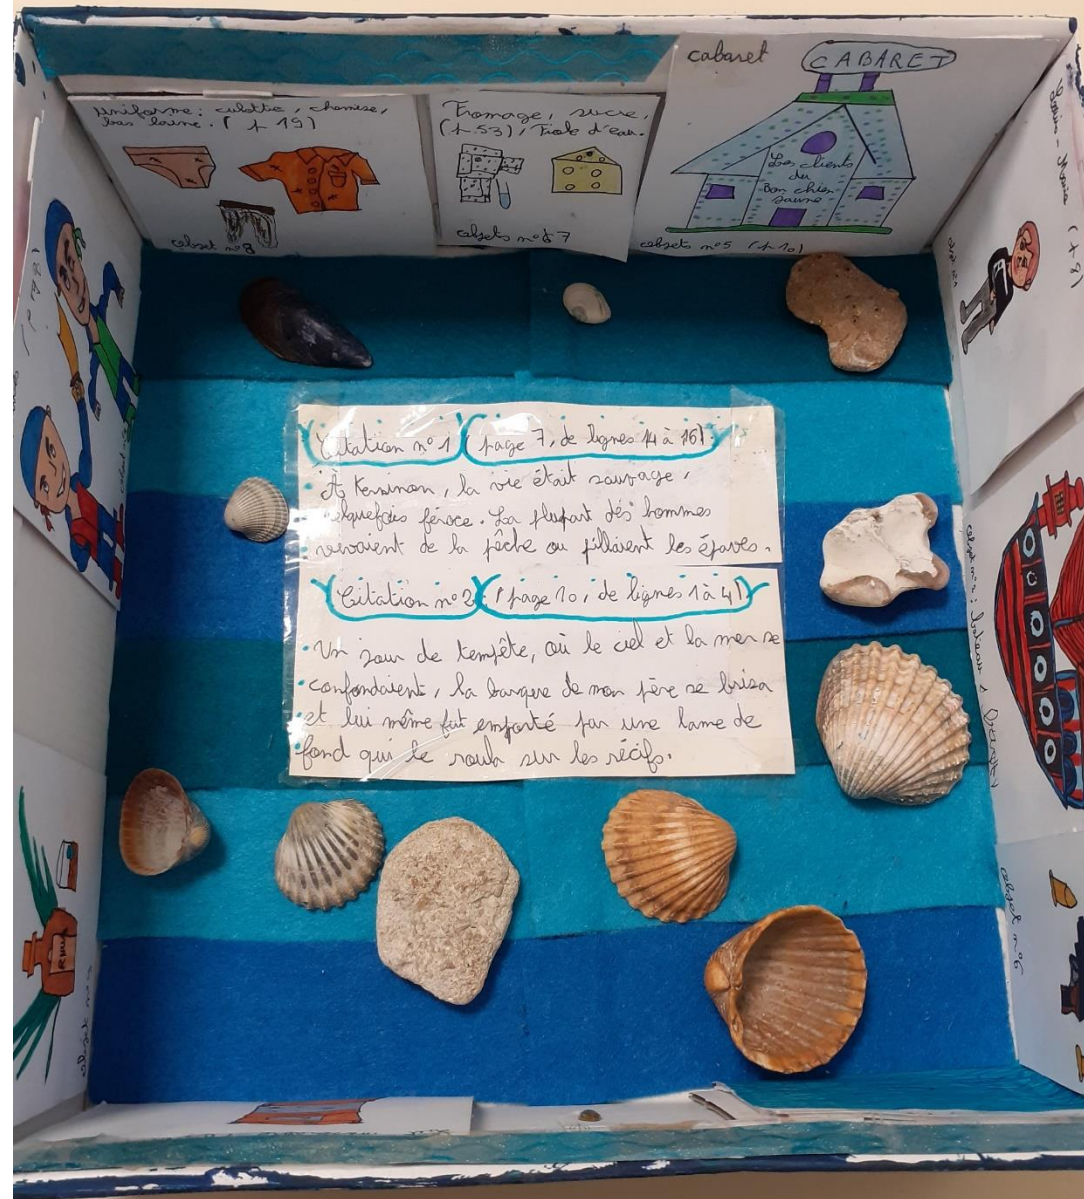 cabaret
CABARET
Uniforme : culotte, chemise,
bas laine. (p 19)
objet n°8
Fromage, sucre,
(p.53), Fiole d'eau.
objets n°7
Les clients
du
Bon chien
jaune
objets n°5 (p10)
Citation n°1 (page 7, de lignes 14 à 16).
À Kersinan, la vie était sauvage,
quelquefois féroce. La plupart des hommes
vivaient de la pêche ou pillaient les épaves.
Citation n°2 : (page 10, de lignes 1 à 4)
Un jour de tempête, où le ciel et la mer se
confondaient, la barque de mon père se brisa
et lui même fut emporté par une lame de
fond qui le roula sur les récifs.
Marie (p 8)
objet n°2 : bateau
objet n°6
RHUM
objet n°